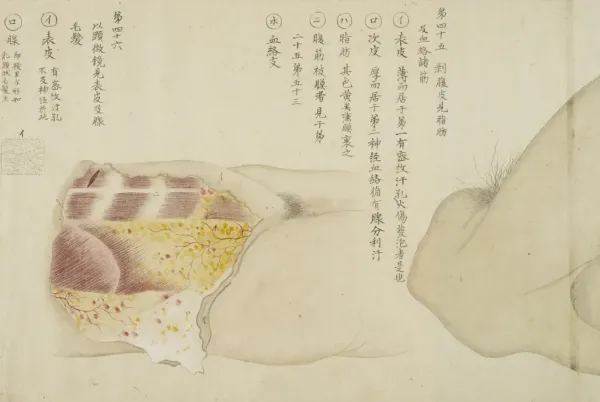 第四十五 剥腹皮見脂肪
及血絡諸筋
イ 表皮 薄而居于第一有密紋汗孔火傷發泡者是也
ロ 次皮 厚而居于第二神経血絡循有腺分利汗
ハ 脂肪 其色黄
二 腹筋 被腰者見于第
二十五第五十三
ホ 血絡支
第四十六
以顕微鏡見表皮及腺
毛髪
イ 表皮 有密紋汗孔
ロ 腺
イ